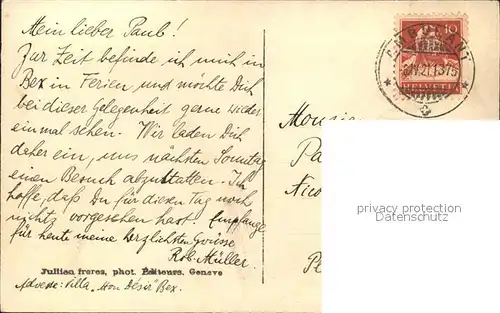 Mein lieber Paul!
Zur Zeit befinde ich mich in
Bex in Ferien und möchte Dich
bei dieser Gelegenheit gerne wieder
einmal sehen. Wir laden Dich
daher ein, uns nächsten Sonntag
einen Besuch abzustatten. Ich
hoffe, daß Du für diesen Tag noch
nichts vorgesehen hast. Empfange
für heute meine herzlichsten Grüsse
Rob. Müller.
Jullien freres, phot. Editeurs. Geneve
Adresse: Villa „Mon Désir" Bex.
10
AMBULANT
HELVETIA
Monsie
Pa
Nico
privacy protection
Datenschutz